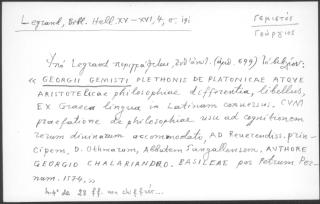 Legrand, Bibl. Hell. XV–XVI, 4, σ. 191
Γεμιστός
Γεώργιος
Υπό Legrand περιγράφεται, (ἀριθ. 699) τὸ βιβλίον:
« GEORGII GEMISTI PLETHONIS DE PLATONICAE ATQVE
ARISTOTELICAE philosophiae differentia, libellus,
EX Graeca lingua in Latinam conuersus. CVM
praefatione de philosophiae usu ad cognitionem
rerum diuinarum accommodato, AD Reuerendiss. prin-
cipem, D. Othmarum, Abbatem Sangallensem. AVTHORE
GEORGIO CHALARIANDRO. BASILEAE per Petrum Per-
nam. 1574. »
in-4° de 28 ff. non chiffrés..